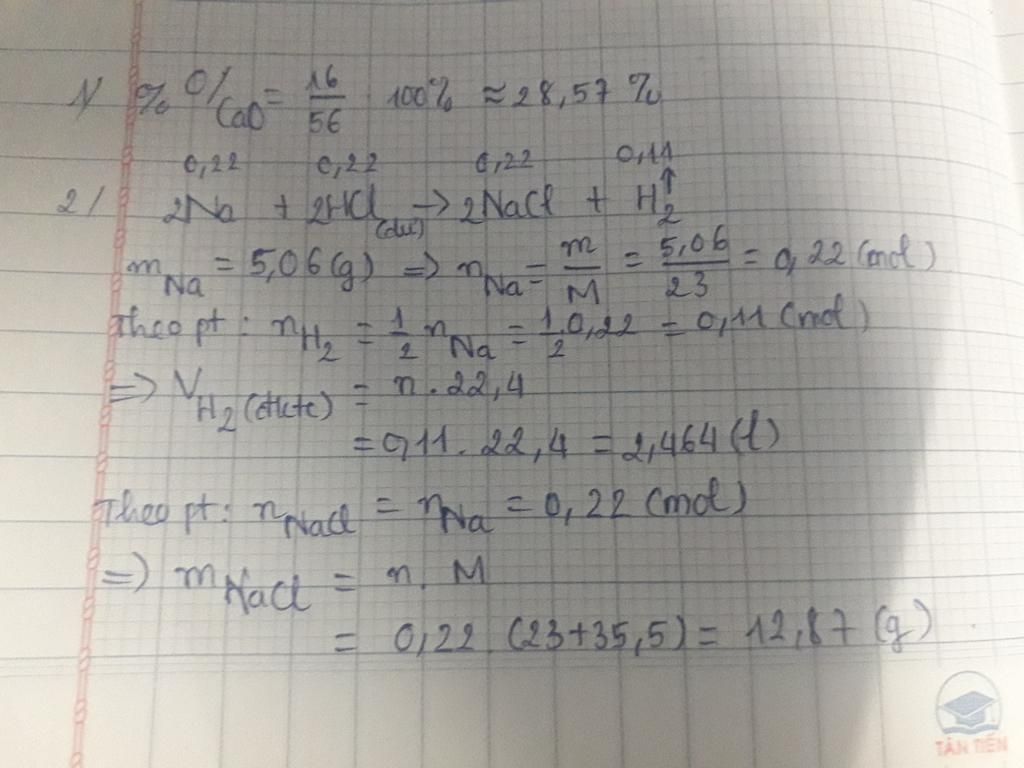 1/ % O/CaO = 16/56 . 100% ≈ 28,57 %
0,22 0,22 0,22 0,11
2/ 2Na + 2HCl (dư) → 2NaCl + H₂↑
m_Na = 5,06 (g) => n_Na = m/M = 5,06/23 = 0,22 (mol)
Theo pt: n_H₂ = 1/2 n_Na = 1/2 . 0,22 = 0,11 (mol)
=> V_H₂ (đktc) = n . 22,4
= 0,11 . 22,4 = 2,464 (l)
Theo pt: n_NaCl = n_Na = 0,22 (mol)
=> m_NaCl = n . M
= 0,22 . (23+35,5) = 12,87 (g)
TÂN TIẾN